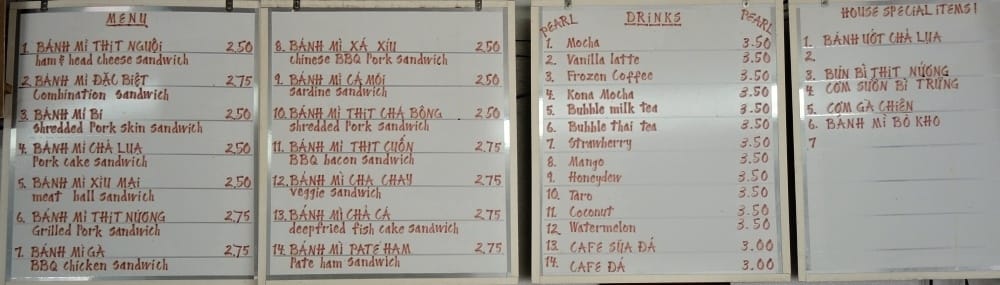 MENU
1. BÁNH MÌ THỊT NGUỘI 2,50
ham & head cheese sandwich
2. BÁNH MÌ ĐẶC BIỆT 2,75
Combination sandwich
3. BÁNH MÌ BÌ 2,50
shredded Pork skin sandwich
4. BÁNH MÌ CHẢ LỤA 2,50
Pork cake sandwich
5. BÁNH MÌ XÍU MẠI 2,50
meat ball sandwich
6. BÁNH MÌ THỊT NƯỚNG 2,75
Grilled Pork sandwich
7. BÁNH MÌ GÀ 2,75
BBQ chicken sandwich
8. BÁNH MÌ XÁ XÍU 2,50
chinese BBQ Pork sandwich
9. BÁNH MÌ CÁ MÒI 2,50
sardine sandwich
10. BÁNH MÌ THỊT CHÀ BÔNG 2,50
shredded Pork sandwich
11. BÁNH MÌ THỊT CUỐN 2,75
BBQ bacon sandwich
12. BÁNH MÌ CHẢ CHAY 2,75
Veggie sandwich
13. BÁNH MÌ CHẢ CÁ 2,75
deepfried fish cake sandwich
14. BÁNH MÌ PATE HAM 2,75
Pate ham sandwich
PEARL DRINKS PEARL
1. Mocha 3.50
2. Vanilla latte 3.50
3. Frozen Coffee 3.50
4. Kona Mocha 3.50
5. Bubble milk tea 3.50
6. Bubble thai tea 3.50
7. Strawberry 3.50
8. Mango 3.50
9. Honeydew 3.50
10. Taro 3.50
11. Coconut 3.50
12. Watermelon 3.50
13. CAFE SỮA ĐÁ 3.00
14. CAFE ĐÁ 3.00
HOUSE SPECIAL ITEMS!
1. BÁNH ƯỚT CHẢ LỤA
2.
3. BÚN BÌ THỊT NƯỚNG
4. CƠM SƯỜN BÌ TRỨNG
5. CƠM GÀ CHIÊN
6. BÁNH MÌ BÒ KHO
7